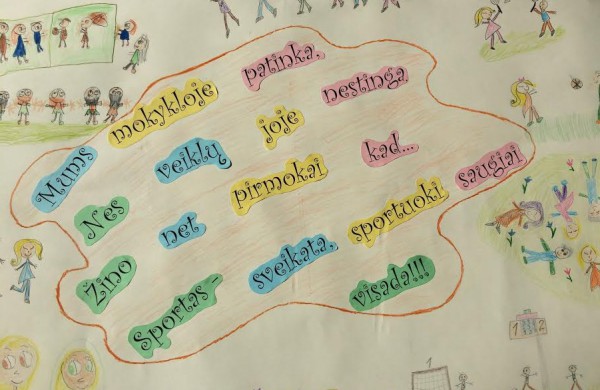 Mums mokykloje patinka,
Nes veiklų joje nestinga
Žino net pirmokai kad...
Sportas – sveikata, sportuoki saugiai
visada!!!
1 2
1